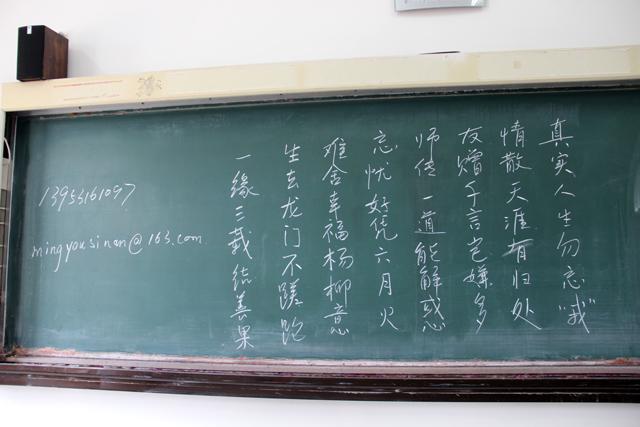 真实人生勿忘“我”
情散天涯有归处
友赠千言岂嫌多
师传一道能解惑
忘忧好凭六月火
难舍幸福杨柳意
生去龙门不蹉跎
一缘三载结善果
13953161097
mingyousinan@163.com